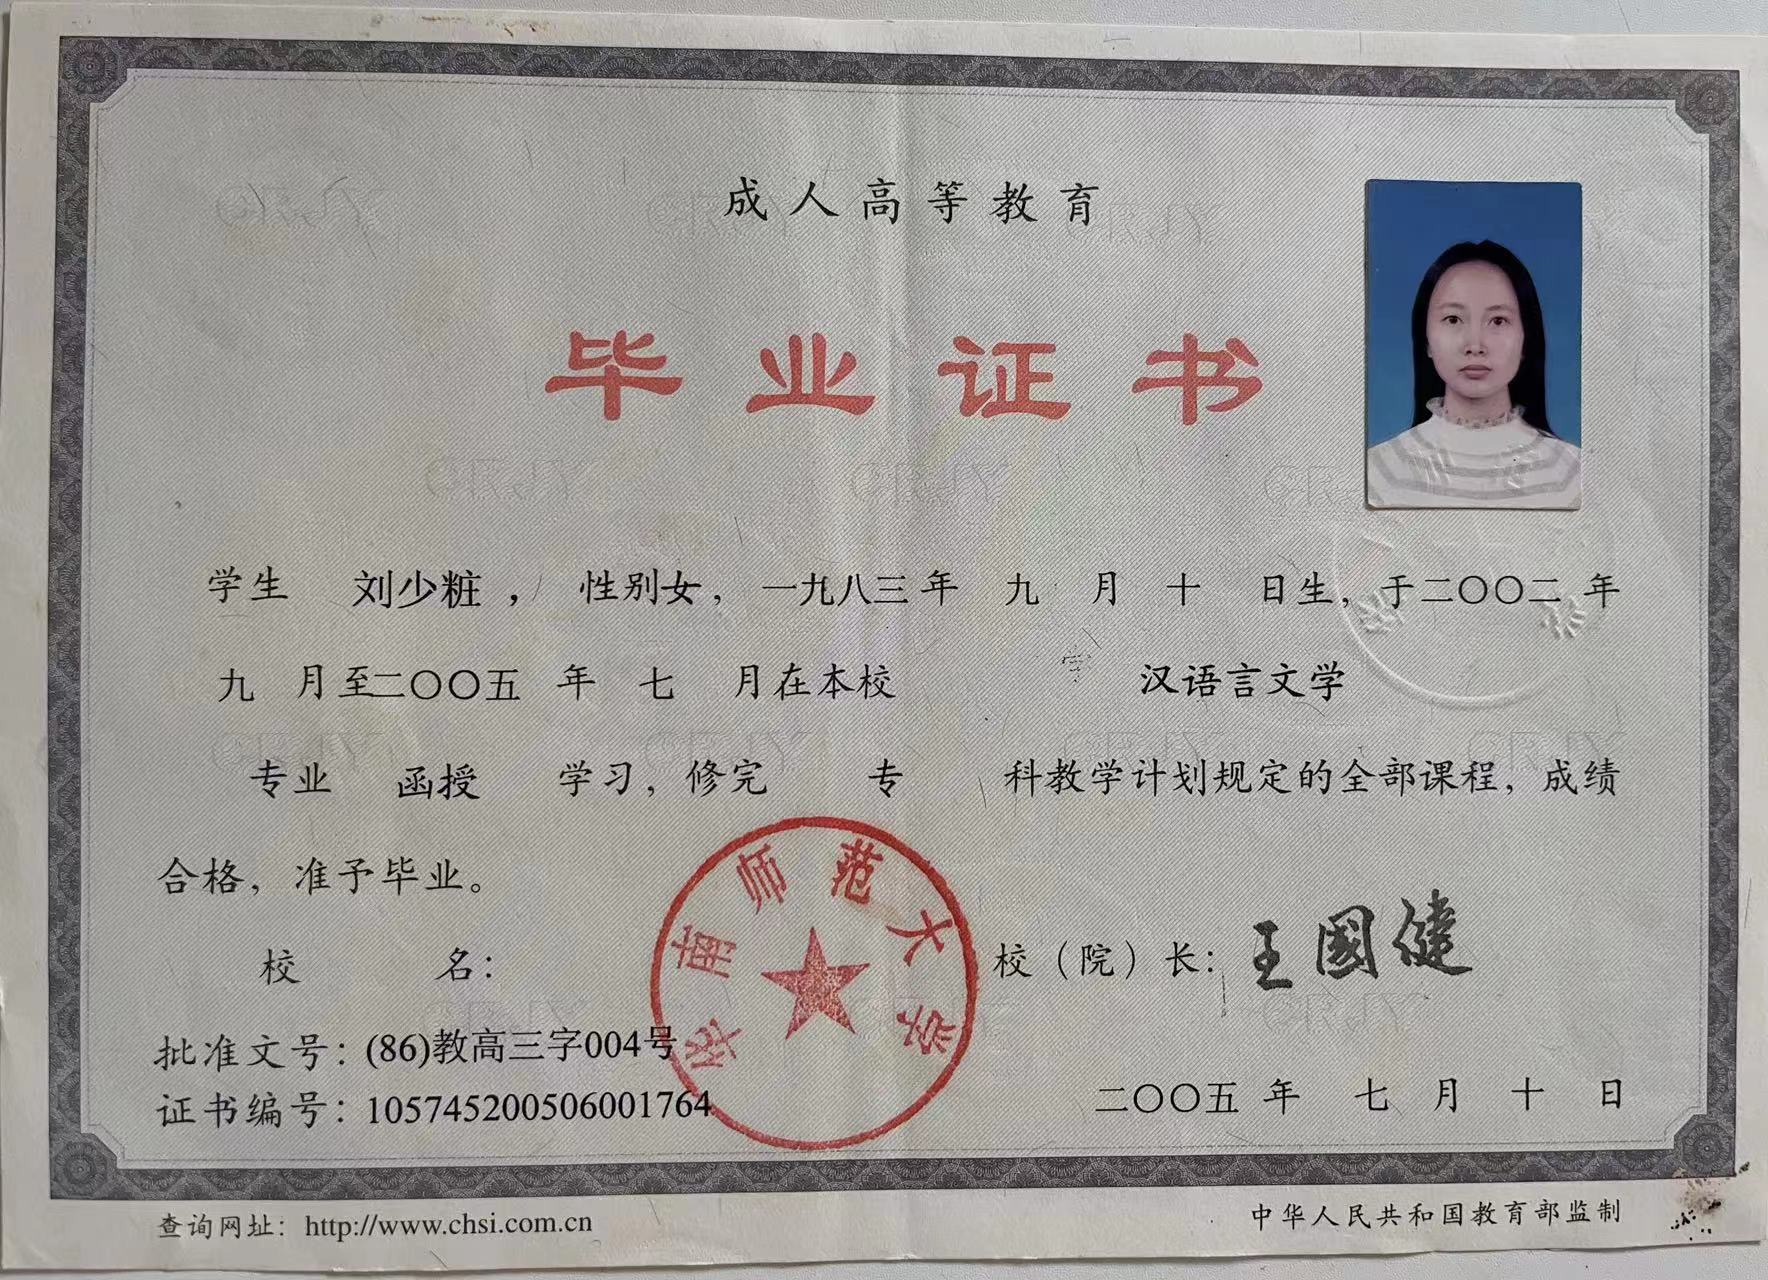 成人高等教育
毕业证书
学生 刘少粧，性别女，一九八三年 九 月 十 日生，于二〇〇二年
九 月至二〇〇五 年 七 月在本校 汉语言文学
专业 函授 学习，修完 专 科教学计划规定的全部课程，成绩
合格，准予毕业。
校 名：
华南师范大学
校（院）长：王國健
批准文号：(86)教高三字004号
证书编号：105745200506001764
二〇〇五 年 七 月 十 日
查询网址：http://www.chsi.com.cn
中华人民共和国教育部监制